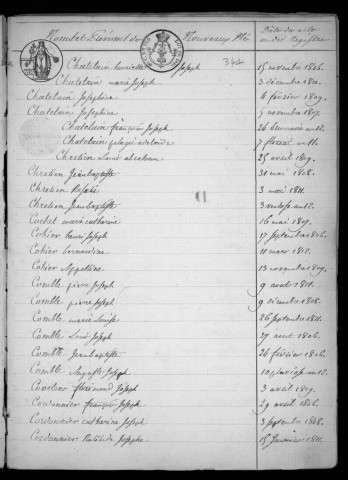 Nom et Prénoms des Nouveaux Nés
Date des actes
ou des Registres
342
Chatelain henriette Joseph 15 novembre 1806.
Chatelain marie Joseph 3 décembre 1810.
Chatelain Josephine 6 février 1809.
Chatelain Josephine 5 novembre 1807.
Chatelain françois Joseph 26 an 12.
Chatelain pelagie adelaide 7 floreal an 11.
Chretien Louis abraham 25 avril 1809.
Chretien Jean baptiste 31 mai 1808.
Chretien Rosalie 3 mai 1811.
Chretien Jean baptiste 3 ventose an 12.
Cochet marie catherine 16 mai 1807.
Cohier henri Joseph 17 Septembre 1806.
Cohier bernardine 11 mars 1812.
Cohier Appoline 13 novembre 1809.
Comble pierre Joseph 9 avril 1811.
Comble pierre Joseph 9 décembre 1808.
Comble marie Louise 26 Septembre 1811.
Comble Louis Joseph 27 août 1806.
Comble Jean baptiste 26 février 1806.
Comble Auguste Joseph 10 an 12.
Copelier florimond Joseph 3 avril 1809.
Cordonnier françois Joseph 29 avril 1806.
Cordonnier catherine Joseph 3 Septembre 1808.
Cordonnier Josephe 15 Janvier 1811.